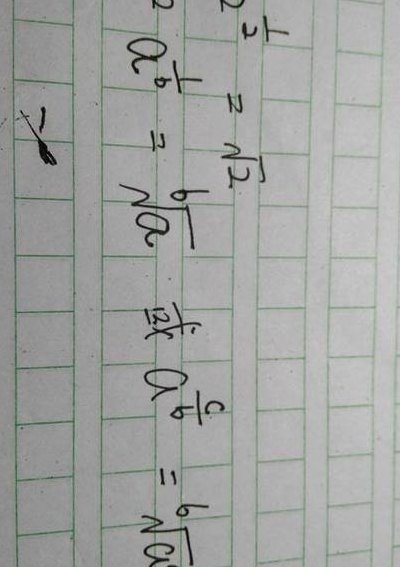 2^{\frac{1}{2}} = √2
a^{\frac{1}{b}} = \sqrt[b]{a} a^{\frac{c}{b}} = \sqrt[b]{a